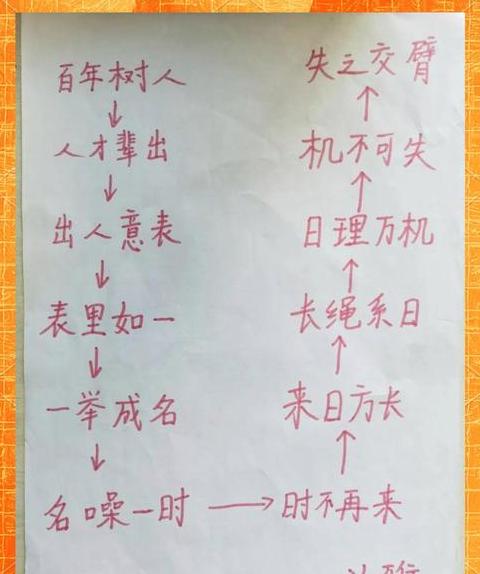 百年树人
↓
人才辈出
↓
出人意表
↓
表里如一
↓
一举成名
↓
名噪一时 → 时不再来
↑
来日方长
↑
长绳系日
↑
日理万机
↑
机不可失
↑
失之交臂